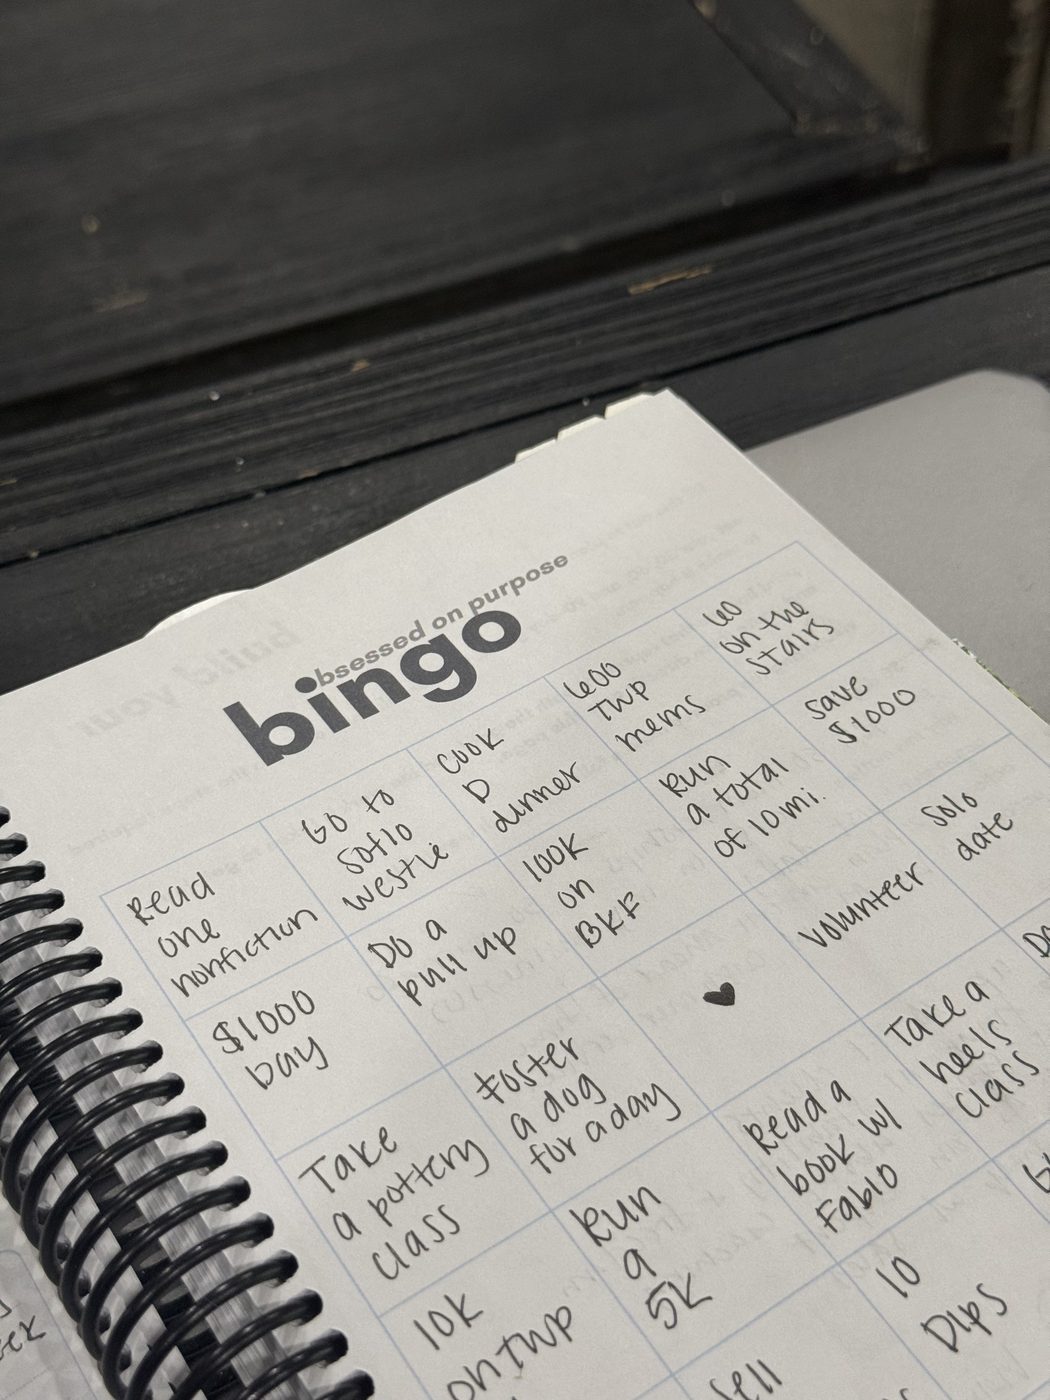 obsessed on purpose
bingo
Read
one
nonfiction
Go to
Sotlo
westie
Cook
D
dinner
600
TWP
mems
60
on the
stairs
$1000
Day
Do a
pull up
100K
on
BKF
Run
a total
of 10 mi.
Save
$1000
Take
a pottery
class
Foster
a dog
for a day
Volunteer
Solo
date
10K
on TWP
Run
a
5K
Read a
book w/
Fablo
Take a
heels
class
Sell
10
Dips